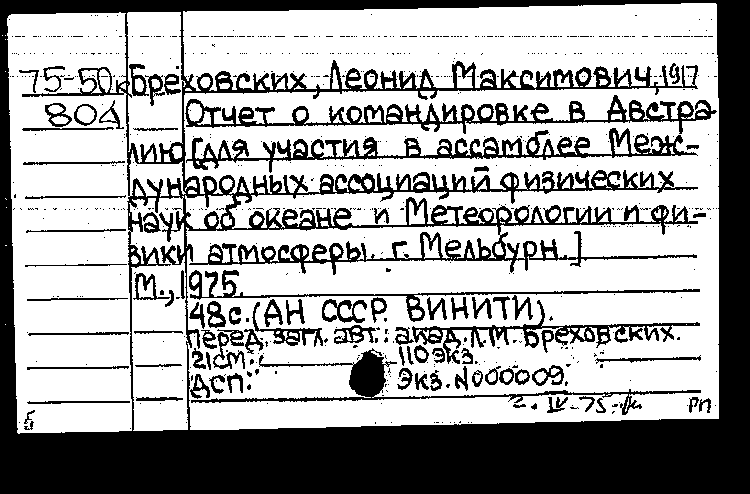 75-50к Бреховских, Леонид Максимович, 1917
804 Отчет о командировке в Австра-
лию [для участия в ассамблее Меж-
дународных ассоциаций физических
наук об океане и Метеорологии и фи-
зики атмосферы. г. Мельбурн.]
М., 1975.
48с. (АН СССР. ВИНИТИ).
Перед загл. авт.: акад. Л.М. Бреховских.
21см. 110 экз.
ДСП. Экз. N000009.
2. IV-75
РП
б